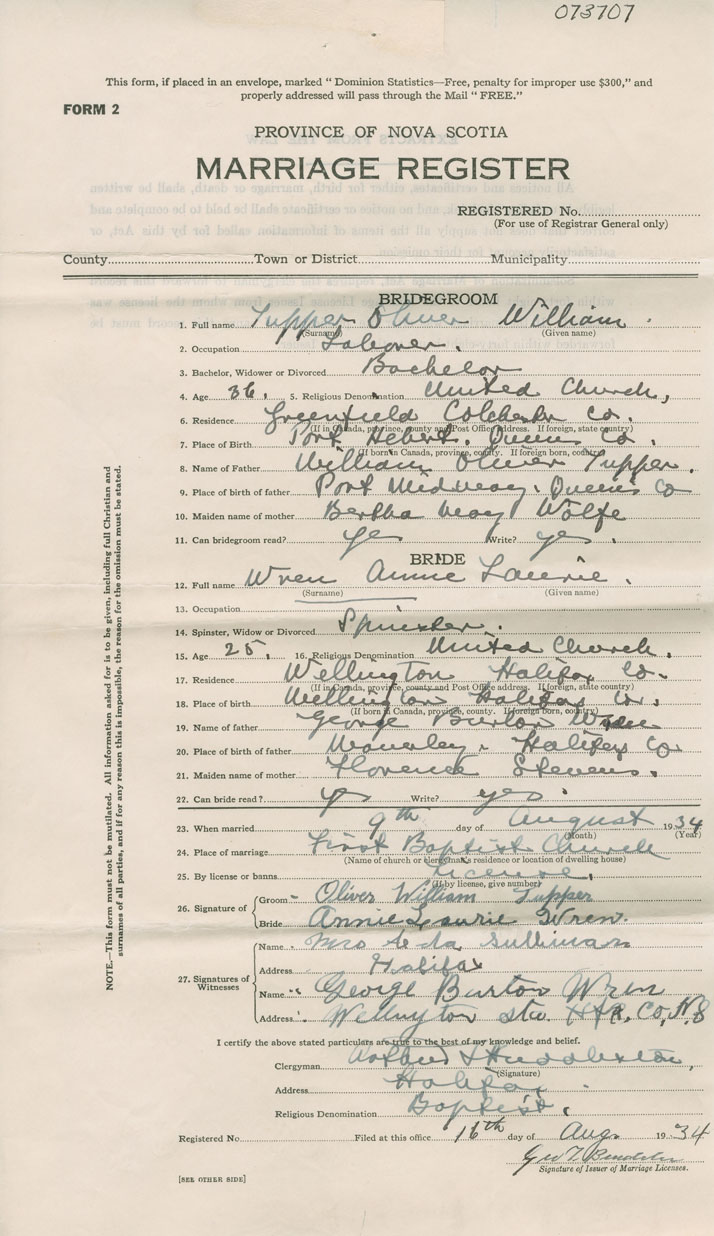 073707
This form, if placed in an envelope, marked " Dominion Statistics—Free, penalty for improper use $300," and
properly addressed will pass through the Mail " FREE."
FORM 2
PROVINCE OF NOVA SCOTIA
MARRIAGE REGISTER
REGISTERED No.
(For use of Registrar General only)
County Town or District Municipality
BRIDEGROOM
1. Full name Tupper Oliver William
(Surname) (Given name)
2. Occupation Laborer.
3. Bachelor, Widower or Divorced Bachelor
4. Age 36. 5. Religious Denomination United Church,
6. Residence Greenfield Colchester Co.
(If in Canada, province, county and Post Office address. If foreign, state country)
7. Place of Birth Port Hebert. Queens Co.
(If born in Canada, province, county. If foreign born, country)
8. Name of Father William Oliver Tupper.
9. Place of birth of father Port Midway. Queens Co
10. Maiden name of mother Bertha May Wolfe
11. Can bridegroom read? yes Write? yes.
BRIDE
12. Full name Wren Annie Laurie.
(Surname) (Given name)
13. Occupation
14. Spinster, Widow or Divorced Spinster.
15. Age 25. 16. Religious Denomination United Church.
17. Residence Wellington Halifax Co.
(If in Canada, province, county and Post Office address. If foreign, state country)
18. Place of birth Wellington Halifax Co.
(If born in Canada, province, county. If foreign born, country)
19. Name of father George Burton Wren
20. Place of birth of father Waverley. Halifax Co
21. Maiden name of mother Florence Stevens.
22. Can bride read? yes Write? yes.
23. When married 9th day of August 1934
(Month) (Year)
24. Place of marriage First Baptist Church
(Name of church or clergyman's residence or location of dwelling house)
25. By license or banns License.
(If by license, give number)
26. Signature of
Groom Oliver William Tupper
Bride Annie Laurie Wren.
27. Signatures of Witnesses
Name Mrs Leda Sullivan
Address Halifax
Name George Burton Wren
Address Wellington Stn. Hfx. Co, N.S
I certify the above stated particulars are true to the best of my knowledge and belief.
Clergyman
(Signature)
Address Halifax
Religious Denomination Baptist.
Registered No. Filed at this office 16th day of Aug. 1934
Signature of Issuer of Marriage Licenses.
[SEE OTHER SIDE]
NOTE.—This form must not be mutilated. All information asked for is to be given, including full Christian and
surnames of all parties, and if for any reason this is impossible, the reason for the omission must be stated.